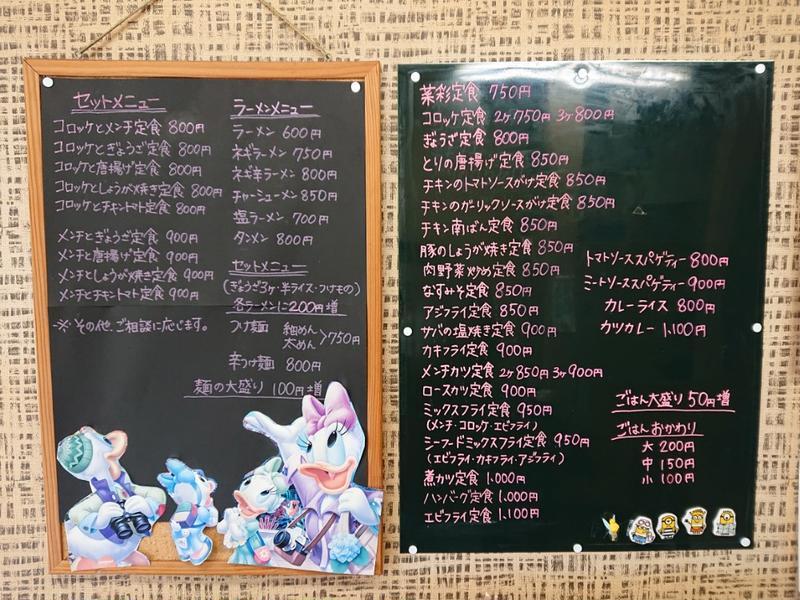 セットメニュー
コロッケとメンチ定食 800円
コロッケとぎょうざ定食 800円
コロッケと唐揚げ定食 800円
コロッケとしょうが焼き定食 800円
コロッケとチキントマト定食 800円
メンチとぎょうざ定食 900円
メンチと唐揚げ定食 900円
メンチとしょうが焼き定食 900円
メンチとチキントマト定食 900円
※その他、ご相談に応じます。
ラーメンメニュー
ラーメン 600円
ネギラーメン 750円
ネギ辛ラーメン 800円
チャーシューメン 850円
塩ラーメン 700円
タンメン 800円
セットメニュー
(ぎょうざ3ヶ・半ライス・つけもの)
各ラーメンに200円増
つけ麺 細めん 太めん >750円
辛つけ麺 800円
麺の大盛り 100円増
菜彩定食 750円
コロッケ定食 2ヶ750円 3ヶ800円
ぎょうざ定食 800円
とりの唐揚げ定食 850円
チキンのトマトソースがけ定食 850円
チキンのガーリックソースがけ定食 850円
チキン南ばん定食 850円
豚のしょうが焼き定食 850円
肉野菜炒め定食 850円
なすみそ定食 850円
アジフライ定食 850円
サバの塩焼き定食 900円
カキフライ定食 900円
メンチカツ定食 2ヶ850円 3ヶ900円
ロースカツ定食 900円
ミックスフライ定食 950円
(メンチ・コロッケ・エビフライ)
シーフードミックスフライ定食 950円
(エビフライ・カキフライ・アジフライ)
煮カツ定食 1,000円
ハンバーグ定食 1,000円
エビフライ定食 1,100円
トマトソーススパゲティー 800円
ミートソーススパゲティー 900円
カレーライス 800円
カツカレー 1,100円
ごはん大盛り 50円増
ごはんおかわり
大 200円
中 150円
小 100円